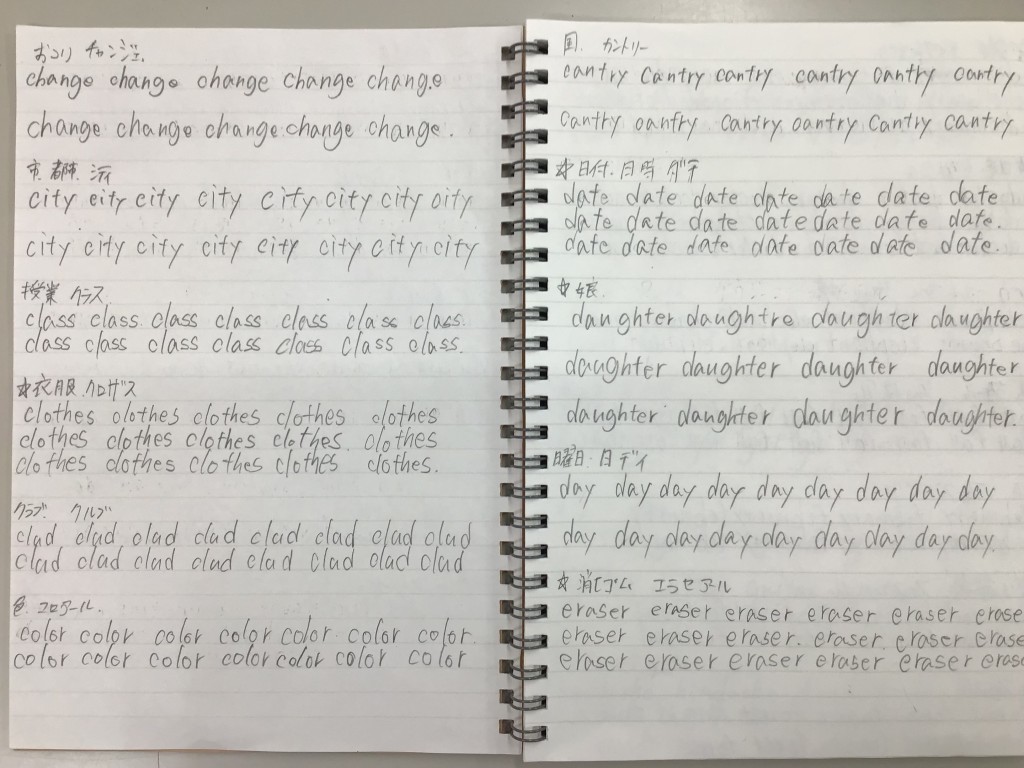 おつり チャンジェ.
change change change change change
change change change change change.
市 都市.
city city city city city city city city
city city city city city city city city
授業 クラス
class class class class class class class.
class class class class class class class.
☆衣服 クロザス
clothes clothes clothes clothes clothes
clothes clothes clothes clothes clothes
clothes clothes clothes clothes clothes.
クラブ. クルブ
clud clud clud clud clud clud clud clud
clud clud clud clud clud clud clud clud
色. コロアール.
color color color color color color color.
color color color color color color color
国. カントリー
cantry cantry cantry cantry cantry cantry
cantry cantry cantry cantry cantry cantry
☆日付. 日時 ダテ
date date date date date date date
date date date date date date date.
date date date date date date date.
☆娘
daughter daughtre daughter daughter
daughter daughter daughter daughter
daughter daughter daughter daughter.
曜日. 日 デイ
day day day day day day day day day
day day day day day day day day day.
☆消しゴム エラセアール
eraser eraser eraser eraser eraser erase
eraser eraser eraser. eraser eraser erase
eraser eraser eraser eraser eraser eras